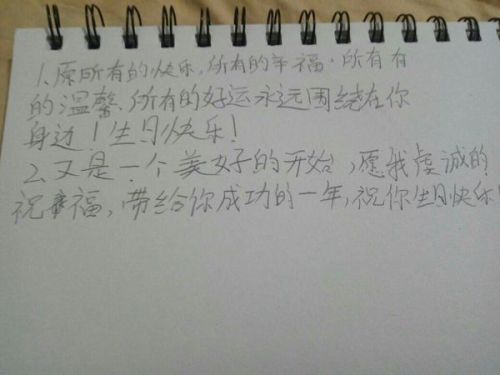 1、原所有的快乐,所有的年福·所有有
的温馨、所有的好运永远围绕在你
身边!生日快乐!
2、又是一个美好的开始,愿我虔诚的
祝福,带给你成功的一年,祝你生日快乐